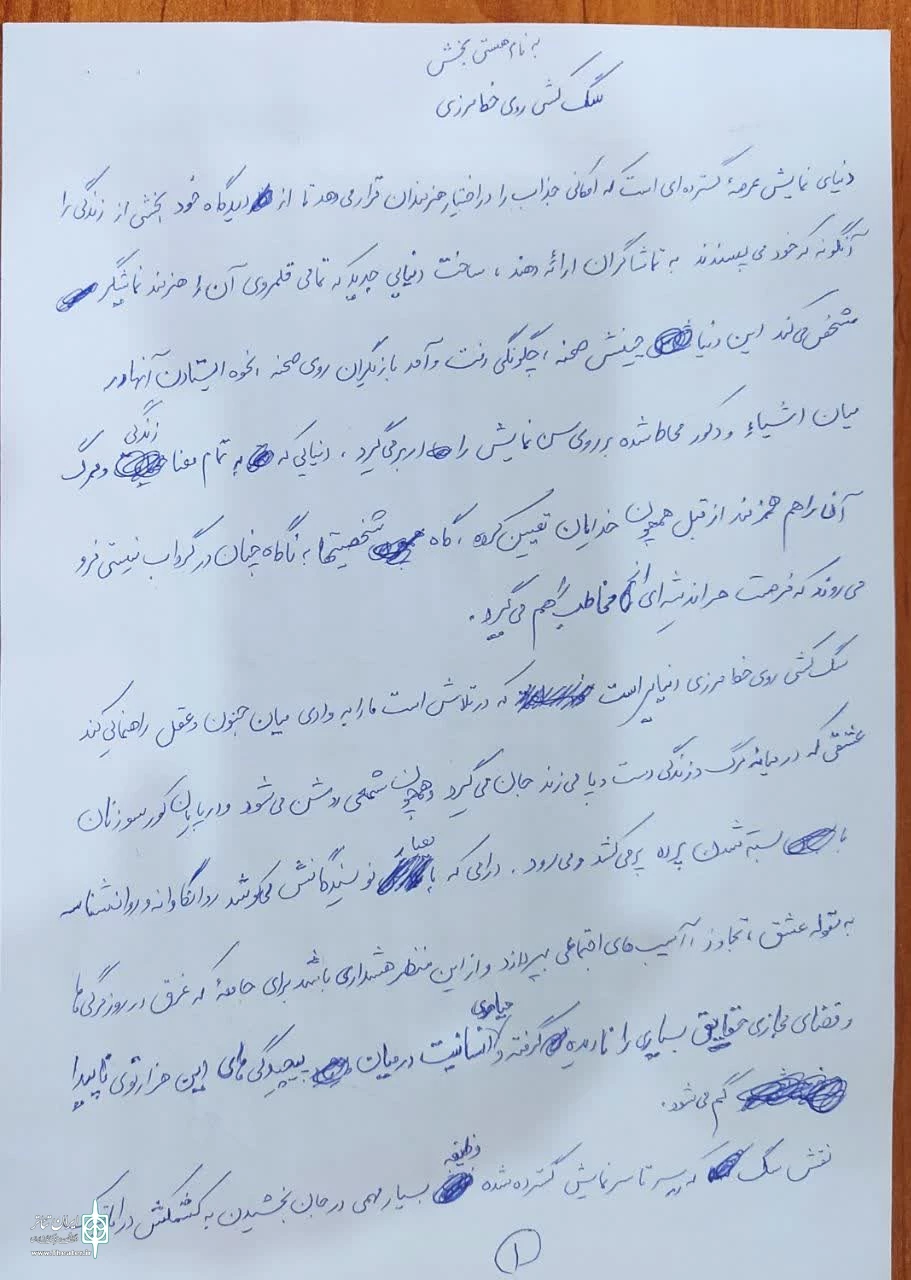 به نام هستی بخش
سگ کشی روی خط مرزی
دنیای نمایش عرصهٔ گسترده‌ای است که امکانی جذاب را در اختیار هنرمندان قرار می‌دهد تا از دیدگاه خود بخشی از زندگی را
آنگونه که خود می‌پسندند به تماشاگران ارائه دهند، ساخت دنیایی جدید که تمامی قلمروی آن را هنرمند نمایشگر
مشخص می‌کند این دنیا چینش صحنه، چگونگی رفت و آمد بازیگران روی صحنه نحوه ایستادن آنها در
میان اشیاء و دکور محاط شده بر روی سن نمایش را در بر می‌گیرد، دنیایی که به تمام معنا زندگی و مرگ
آن را هم هنرمند از قبل همچون خدایان تعیین کرده، گاه شخصیتها به ناگاه چنان در گرداب نیستی فرو
می‌روند که فرصت هر اندیشه‌ای از مخاطب را هم می‌گیرد.
سگ کشی روی خط مرزی دنیایی است که در تلاش است ما را به وادی میان جنون و عقل راهنمایی کند
عشقی که در میانهٔ مرگ و زندگی دست و پا می‌زند جان می‌گیرد و همچون شمعی روشن می‌شود و در پایان کور سو زنان
با بسته شدن پرده پر می‌کشد و می‌رود. درامی که با نویسندگانش می‌کوشد روانکاوانه و روانشناسانه
به مقوله عشق، تجاوز، آسیب‌های اجتماعی بپردازد و از این منظر هشداری باشد برای جامعهٔ که غرق در روزمرگی‌ها
و فضای مجازی حقایق بسیاری را نادیده گرفته و انسانیت در میان پیچیدگی های این هزارتوی ناپیدا
گم می‌شود.
نقش سگ که بر سر تا سر نمایش گسترده شده وظیفه بسیار مهمی در جان بخشیدن به کشمکش
۱
ایران تئاتر
www.theater.ir